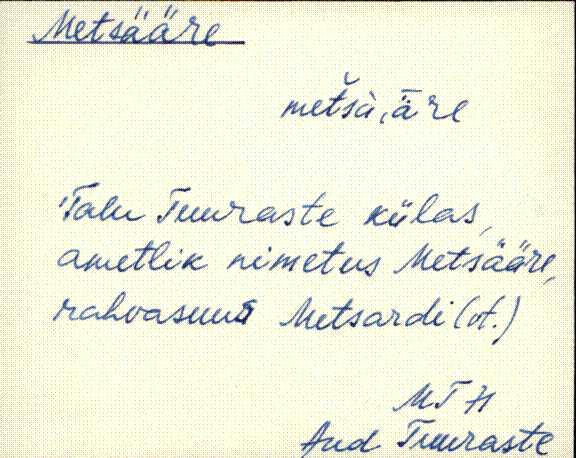 Metsääre
metšà,āre
Talu Tuuraste külas,
ametlik nimetus Metsääre,
rahvasuus Metsardi (vt.)
MTH
And Tuuraste